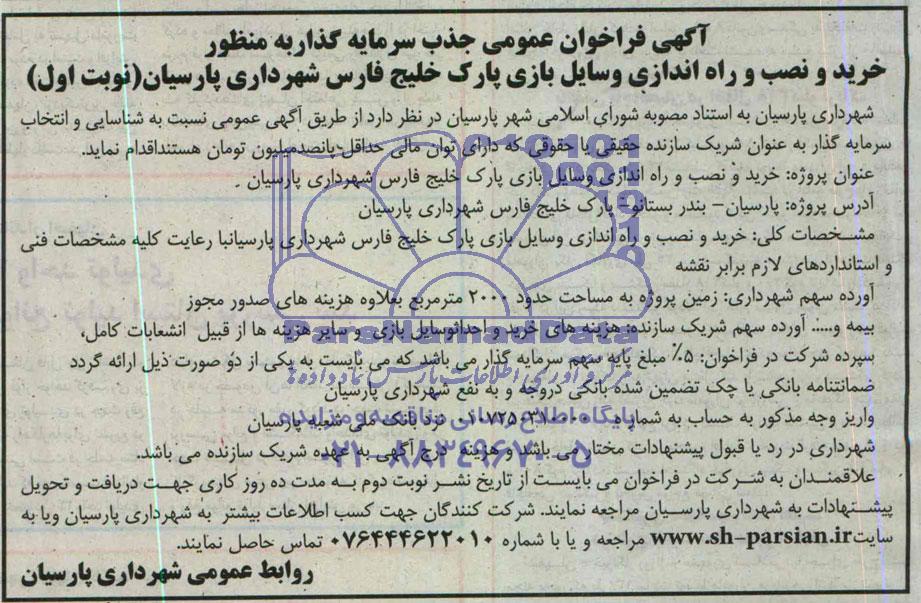 آگهی فراخوان عمومی جذب سرمایه گذاربه منظور
خرید و نصب و راه اندازی وسایل بازی پارک خلیج فارس شهرداری پارسیان(نوبت اول)
شهرداری پارسیان به استناد مصوبه شورای اسلامی شهر پارسیان در نظر دارد از طریق آگهی عمومی نسبت به شناسایی و انتخاب
سرمایه گذار به عنوان شریک سازنده حقیقی یا حقوقی که دارای توان مالی حداقل پانصدمیلیون تومان هستنداقدام نماید.
عنوان پروژه: خرید و نصب و راه اندازی وسایل بازی پارک خلیج فارس شهرداری پارسیان .
آدرس پروژه: پارسیان- بندر بستانو- پارک خلیج فارس شهرداری پارسیان
مشخصات کلی: خرید و نصب و راه اندازی وسایل بازی پارک خلیج فارس شهرداری پارسیانبا رعایت کلیه مشخصات فنی
و استانداردهای لازم برابر نقشه
آورده سهم شهرداری: زمین پروژه به مساحت حدود ۲۰۰۰ مترمربع بعلاوه هزینه های صدور مجوز
بیمه و..... آورده سهم شریک سازنده: هزینه های خرید و احداثوسایل بازی و سایر هزینه ها از قبیل انشعابات کامل،
سپرده شرکت در فراخوان: ۵٪ مبلغ پایه سهم سرمایه گذار می باشد که می بایست به یکی از دو صورت ذیل ارائه گردد
ضمانتنامه بانکی یا چک تضمین شده بانکی دروجه و به نفع شهرداری پارسیان
واریز وجه مذکور به حساب به شماره نزد بانک ملی شعبه پارسیان
شهرداری در رد یا قبول پیشنهادات مختار می باشد و هزینه درج آگهی به عهده شریک سازنده می باشد.
علاقمندان به شرکت در فراخوان می بایست از تاریخ نشر نوبت دوم به مدت ده روز کاری جهت دریافت و تحویل
پیشنهادات به شهرداری پارسیان مراجعه نمایند. شرکت کنندگان جهت کسب اطلاعات بیشتر به شهرداری پارسیان ویا به
سایتwww.sh-parsian.ir مراجعه و یا با شماره ۰۷۶۴۴۴۶۲۲۰۱۰ تماس حاصل نمایند.
روابط عمومی شهرداری پارسیان
ParsNamadData
پایگاه اطلاع رسانی مناقصه و مزایده
۰۲۱-۸۸۳۴۹۶۷۰-۵